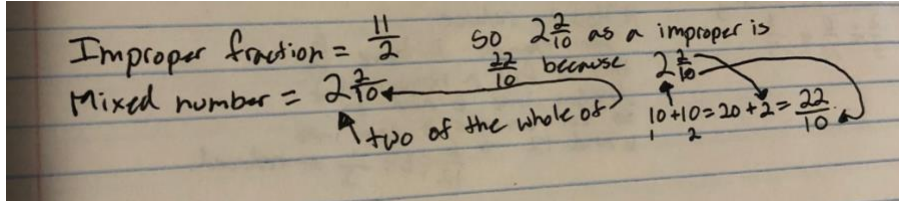 Improper fraction = 11/2
Mixed number = 2 2/10
two of the whole of
So 2 2/10 as a improper is
22/10 because 2 2/10
10+10=20+2=22/10
1 2